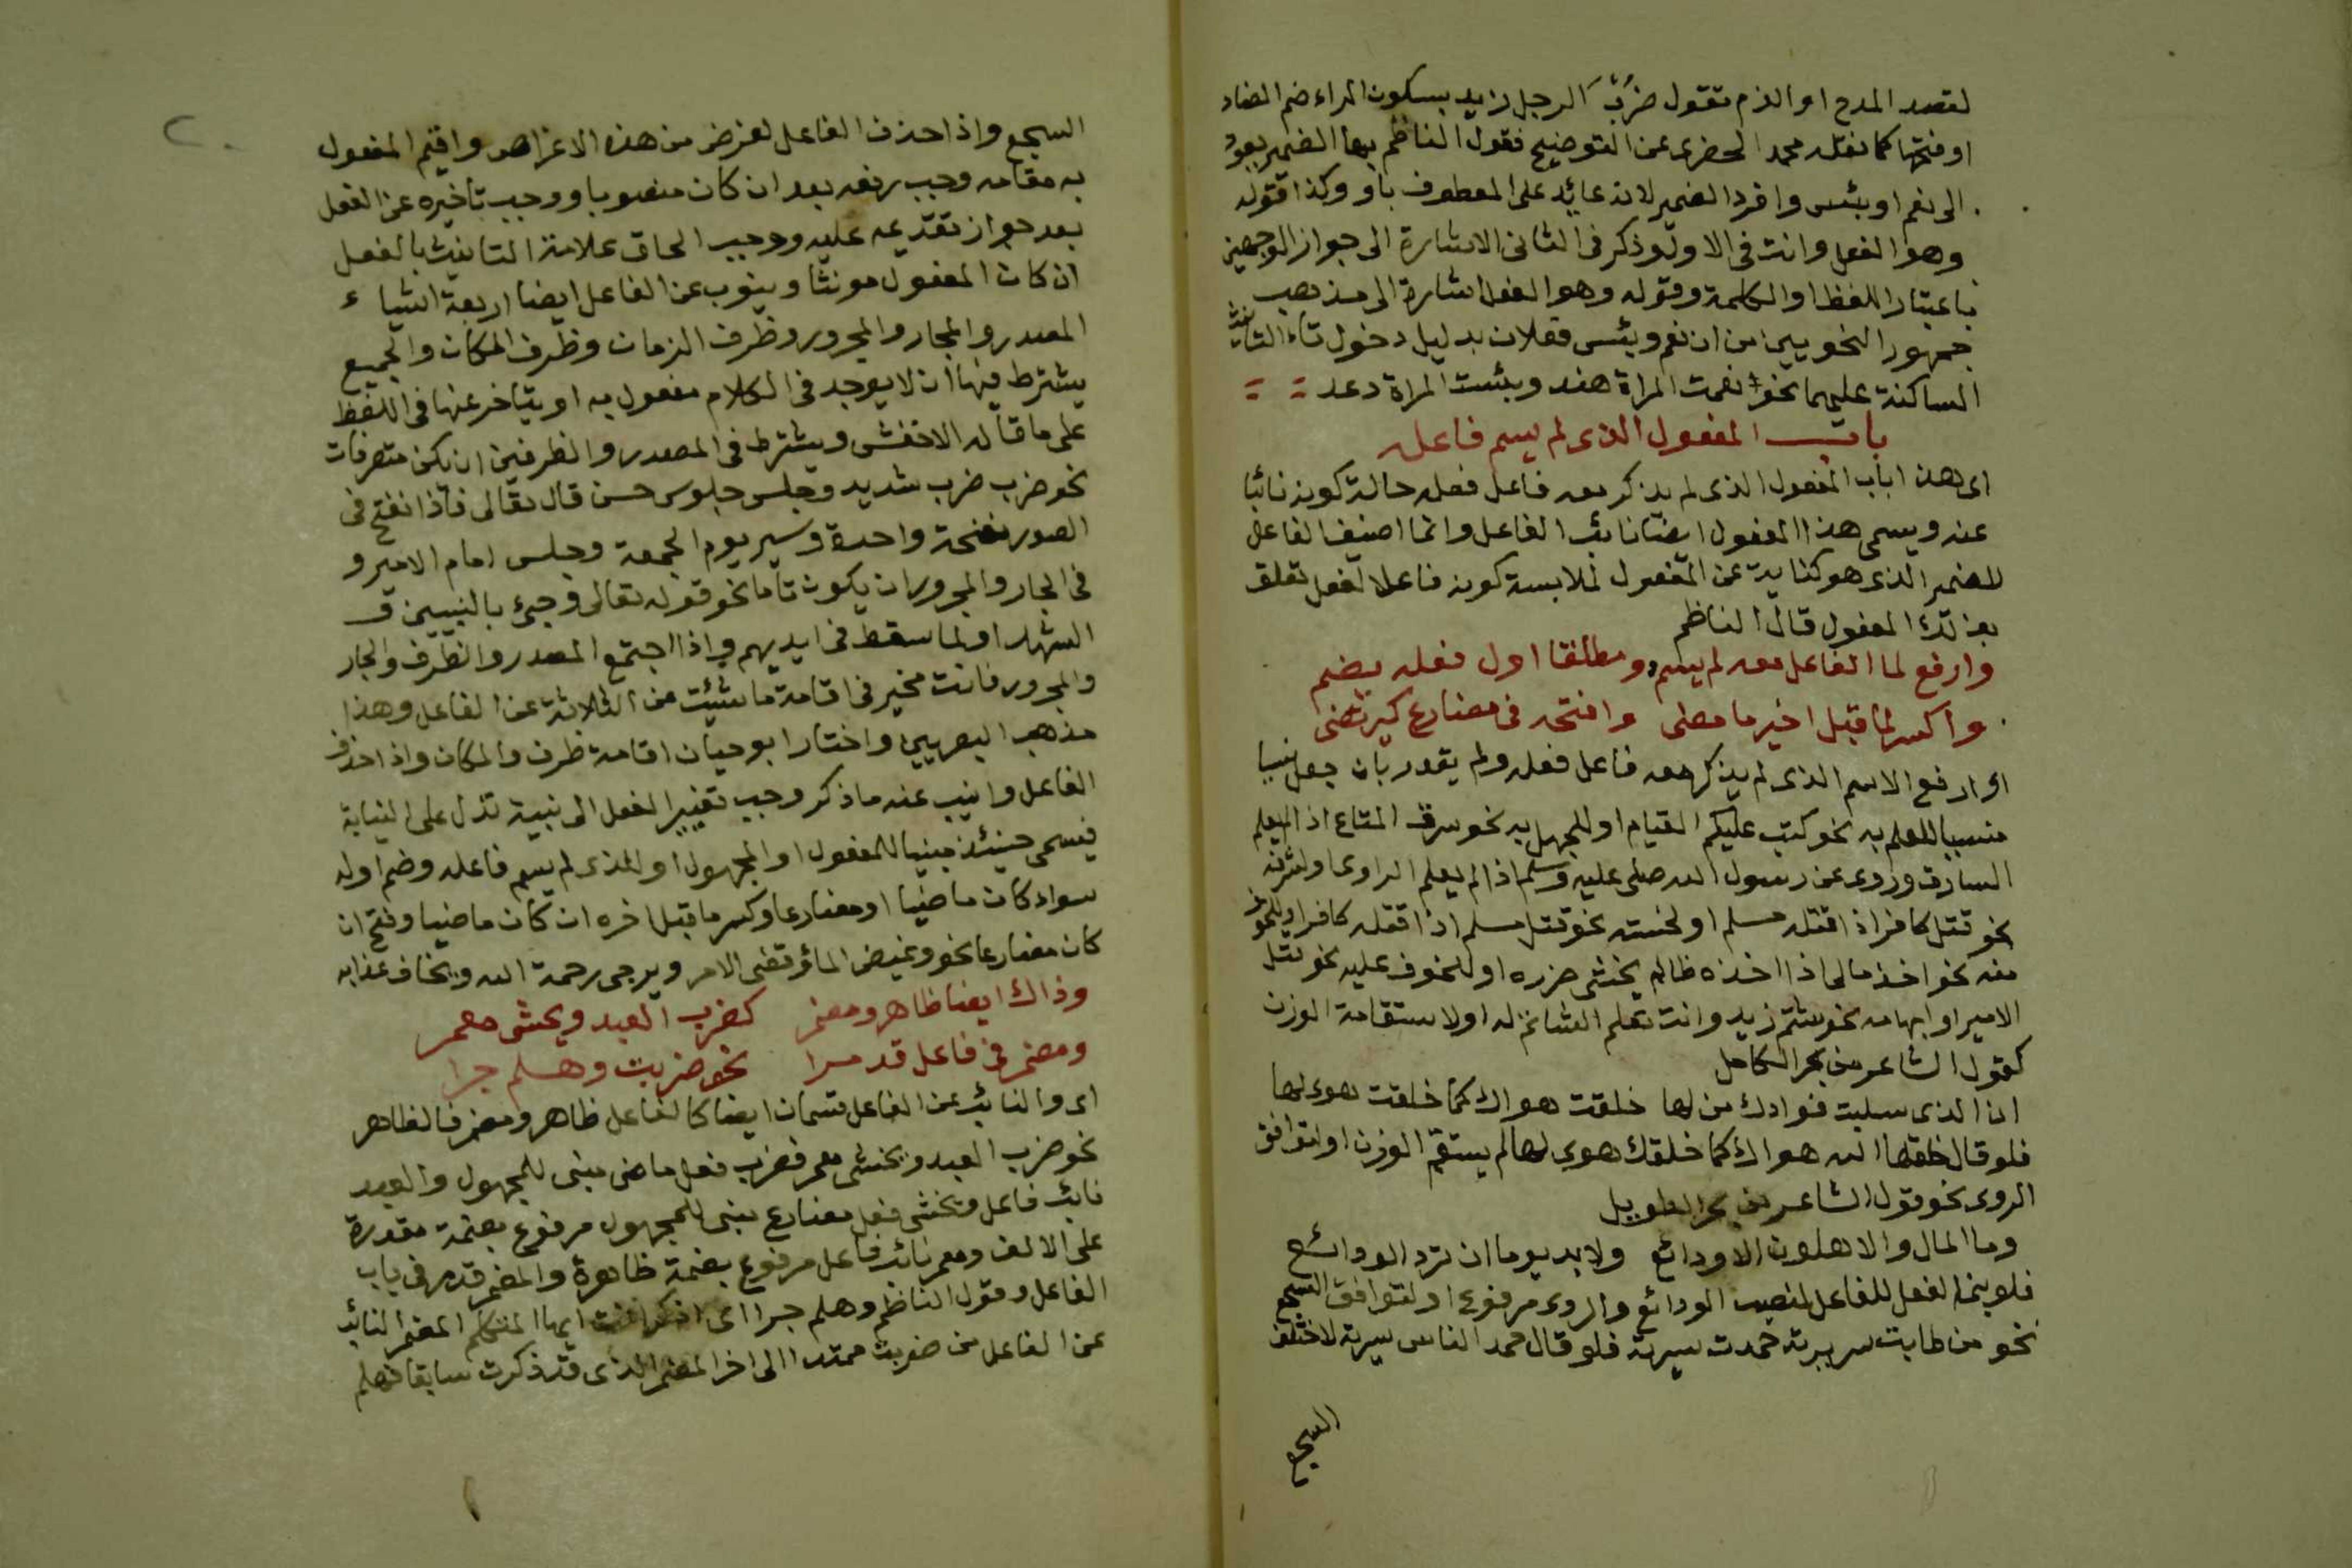 لقصد المدح او الذم تقول ضرب الرجل زيد بسكون الراء ضم الضاد
او فتحها كما نقله محمد الخضرى عن التوضيح فقول الناظم بها الضمير يعود
الى نعم او بئس وافرد الضمير لانه عايد على المعطوف باو وكذا قوله
وهو الفعل وانت فى الاول وذكر فى الثانى الاشارة الى جواز الوجهين
باعتبار اللفظ او الكلمة وقوله وهو الفعل اشارة الى مذهب
جمهور النحويين من ان نعم وبئس فعلان بدليل دخول تاء التانيث
الساكنة عليهما نحو نعمت المراة هند وبئست المراة دعد
باب المفعول الذى لم يسم فاعله
اى هذا باب المفعول الذى لم يذكر معه فاعل فعله حالة كونه نائبا
عنه ويسمى هذا المفعول ايضا نائب الفاعل وانما اضيف الفاعل
للضمير الذى هو كناية عن المفعول لملابسة كونه فاعلا لفعل تعلق
بذلك المفعول قال الناظم
وارفع لما الفاعل معه لم يسم ومطلقا اول فعله يضم
واكسر لما قبل اخير ما مضى وافتحه فى مضارع كيرتضى
اى ارفع الاسم الذى لم يذكر معه فاعل فعله ولم يقدر بان جعل
للعلم به نحو كتب عليكم القيام او للجهل به نحو سرق المتاع اذا لم يعلم
السارق وروى عن رسول الله صلى عليه وسلم اذا لم يعلم الراوى او لشرفه
نحو قتل كافر اذا قتله مسلم او لخسته نحو قتل مسلم اذا قتله كافر او للخوف
منه نحو اخذ مالى اذا اخذه ظالم يخشى ضرره او للخوف عليه نحو قتل
الامير او ابهامه نحو شتم زيد وانت تعلم الشاتم له او لاستقامة الوزن
كقول الشاعر من بحر الكامل
ان الذى سلبت فوادك من لها خلقت هواك كما خلقت هوى لها
فلو قال خلقها الله هواك كما خلقك هوى لها لم يستقم الوزن او لتوافق
الروى نحو قول الشاعر من بحر الطويل
وما المال والاهلون الا ودائع ولا بد يوما ان ترد الودائع
فلو بنى الفعل للفاعل لنصب الودائع والروى مرفوع او لتوافق السجع
نحو من طابت سريرته حمدت سيرته فلو قال حمد الناس سيرته لاختلف
السجع
السجع واذا حذف الفاعل لغرض من هذه الاغراض واقيم المفعول
به مقامه وجب رفعه بعد ان كان منصوبا ووجب تاخيره عن الفعل
بعد جواز تقديمه عليه ووجب الحاق علامة التانيث بالفعل
ان كان المفعول مونثا وينوب عن الفاعل ايضا اربعة اشياء
المصدر والجار والمجرور وظرف الزمان وظرف المكان والجميع
يشترط فيها ان لا يوجد فى الكلام مفعول به او يتاخر عنها فى اللفظ
على ما قاله الاخفش ويشترط فى المصدر والظرفين ان يكن متصرفات
نحو ضرب ضرب شديد وجلس جلوس حسن قال تعالى فاذا نفخ فى
الصور نفخة واحدة وسير يوم الجمعة وجلس امام الامير و
فى الجار والمجرور ان يكون تاما نحو قوله تعالى وجئ بالنبيين و
الشهداء ولما سقط فى ايديهم واذا اجتمع المصدر والظرف والجار
والمجرور فانت مخير فى اقامة ما شئت من الثلاثة عن الفاعل وهذا
مذهب البصريين واختار ابو حيان اقامة ظرف والمكان واذا حذف
الفاعل وانيب عنه ما ذكر وجب تغيير الفعل الى بنية تدل على النيابة
فيسمى حينئذ مبنيا للمفعول او المجهول او للذى لم يسم فاعله وضم اوله
سواء كان ماضيا او مضارعا وكسر ما قبل اخره ان كان ماضيا وفتح ان
كان مضارعا نحو وغيض الماء وقضى الامر ويرجى رحمة الله ويخاف عذابه
وذاك ايضا ظاهر ومضمر كضرب العبد ويخشى معمر
ومضمر فى فاعل قد مرا نحو ضربت وهلم جرا
اى والنائب عن الفاعل قسمان ايضا كالفاعل ظاهر ومضمر فالظاهر
نحو ضرب العبد ويخشى معمر فضرب فعل ماضى مبنى للمجهول والعبد
نائب فاعل ويخشى فعل مضارع مبنى للمجهول مرفوع بضمة مقدرة
على الالف ومعمر نائب فاعل مرفوع بضمة ظاهرة والمضمر قد مر فى باب
الفاعل وقول الناظم وهلم جرا اى اذكر انت ايها المتكلم المضمر النائب
عن الفاعل من ضربت ممتدا الى اخر المضمر الذى قد ذكرت سابقا فهلم